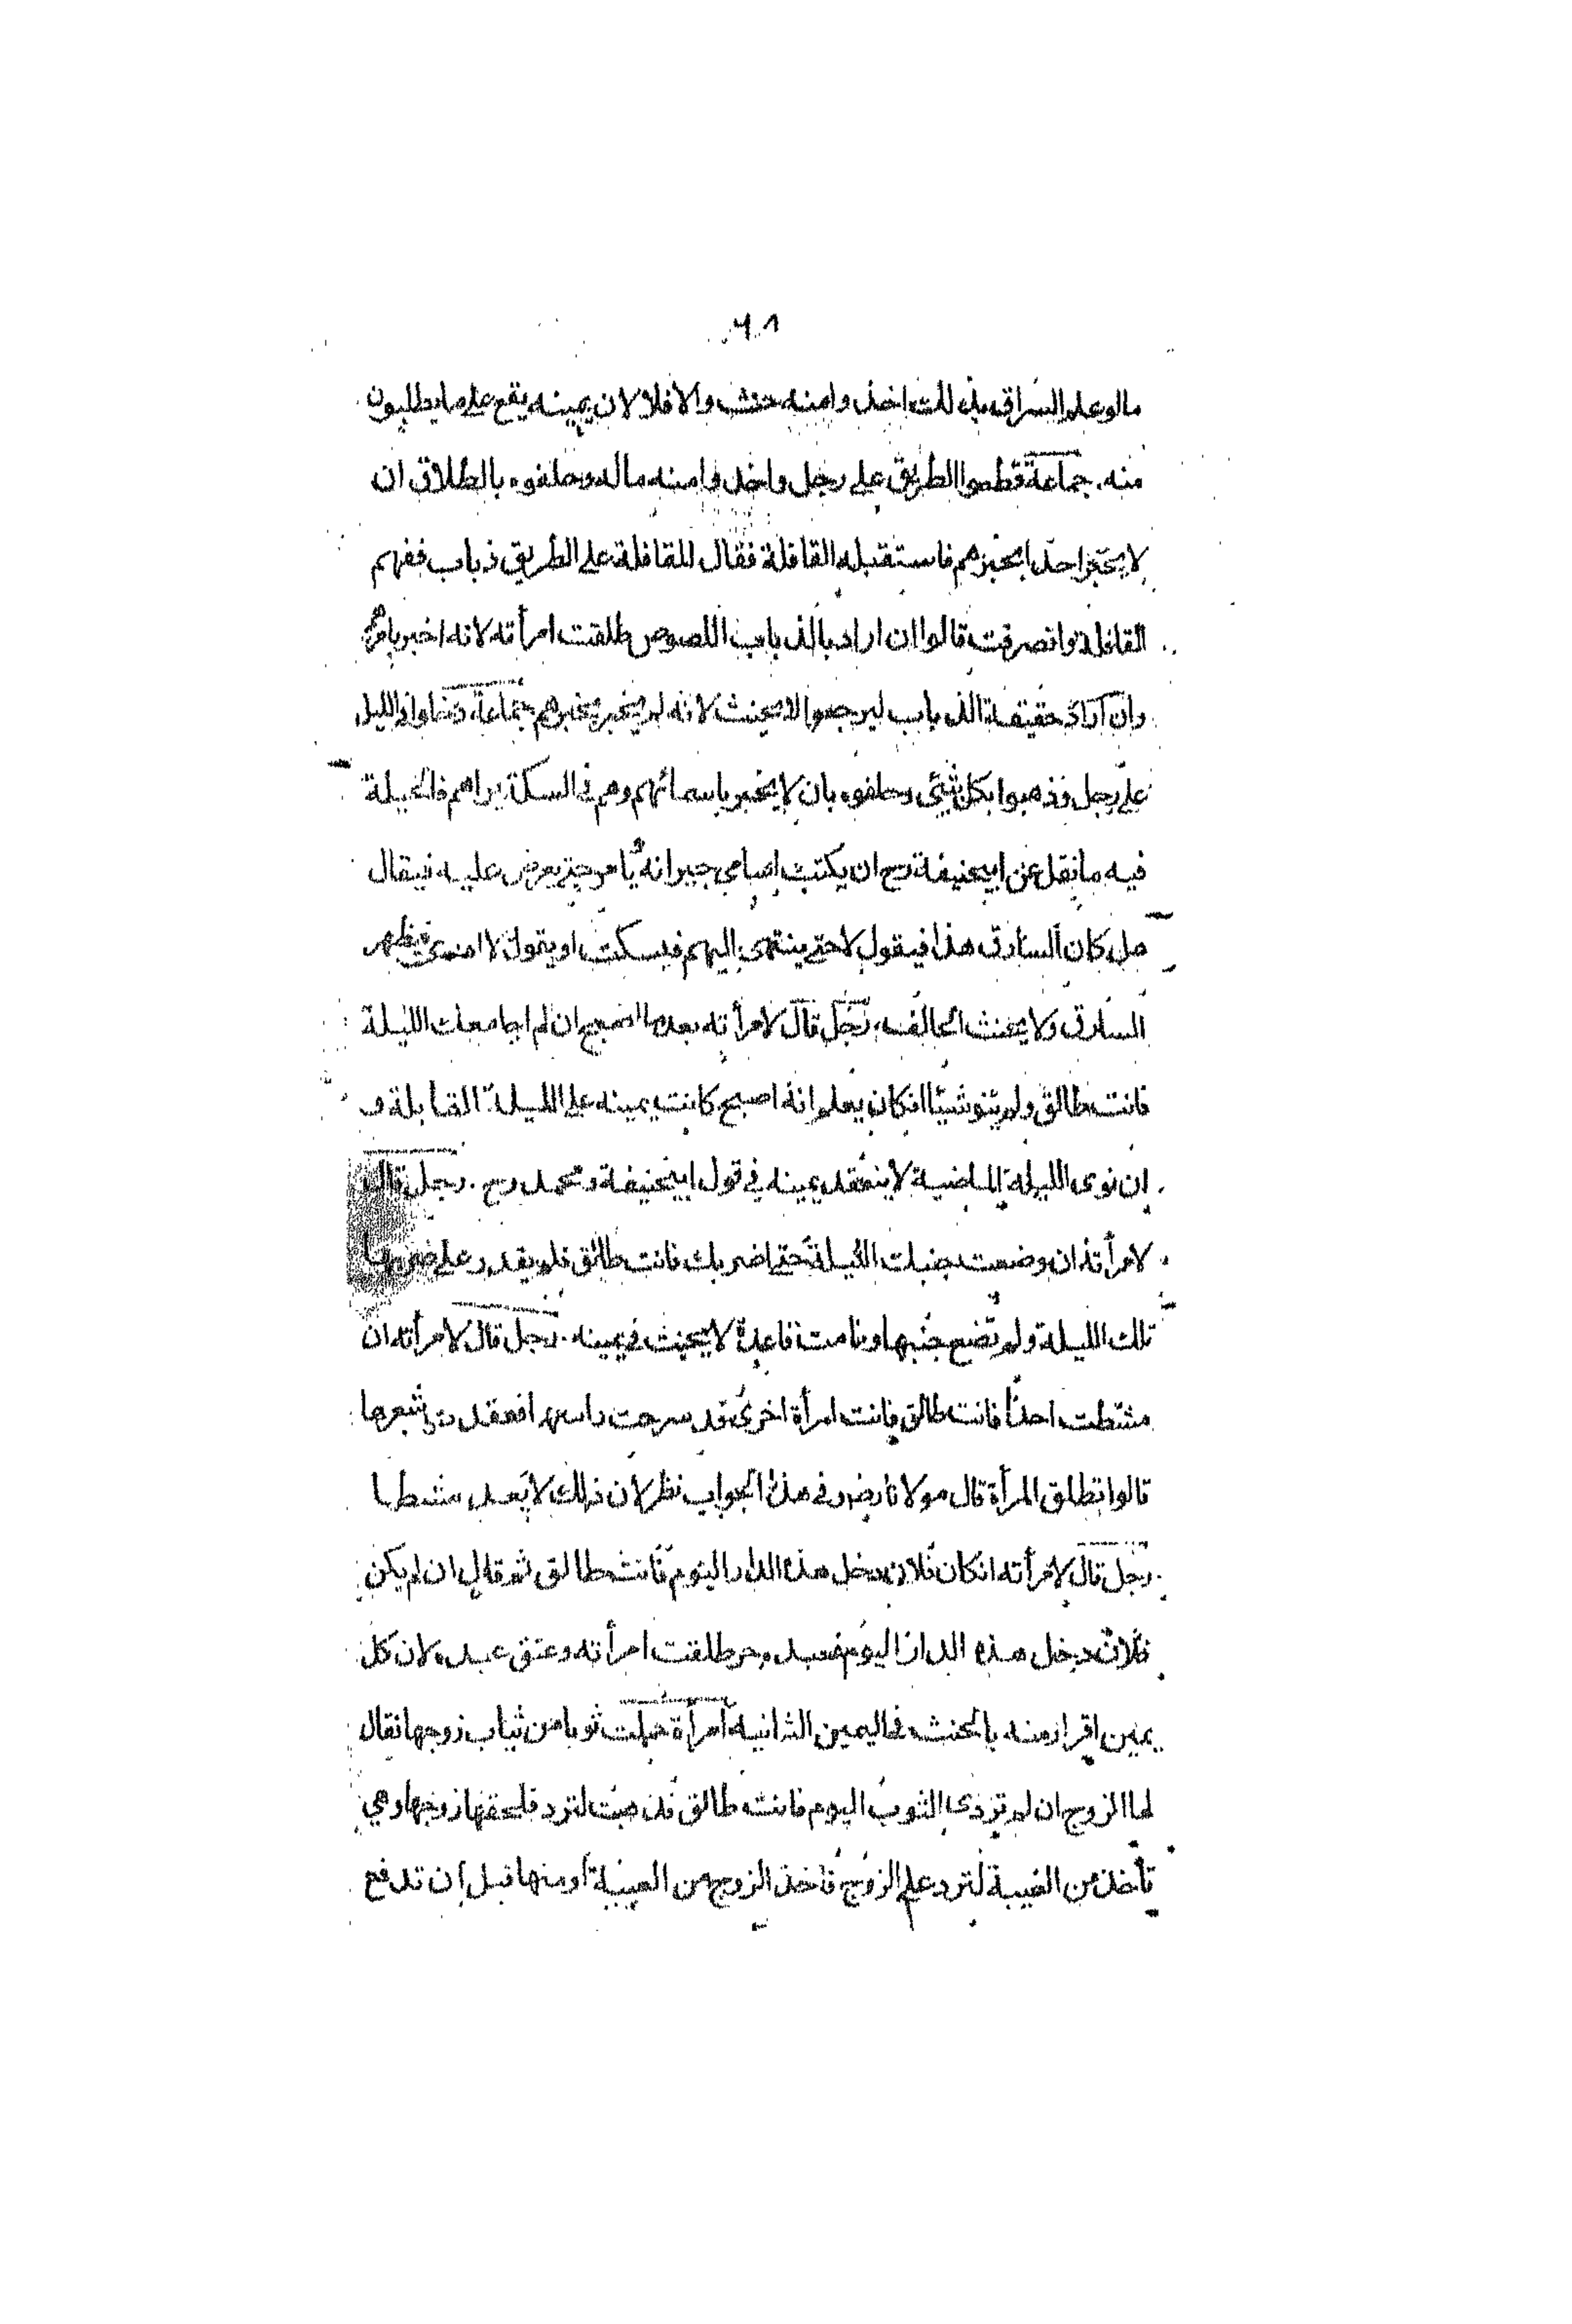 ٦٨
مالو علم السراق بذلك اخذوا منه حنث والا فلا لان يمينه يقع على ما يطلبون
منه. جماعة قطعوا الطريق على رجل واخذوا منه ماله وحلفوه بالطلاق ان
لا يخبر احدا بخبرهم فاستقبله القافلة فقال للقافلة على الطريق ذباب ففهم
القافلة وانصرفت قالوا ان اراد بالذباب اللصوص طلقت امرأته لانه اخبر بامرهم
وان اراد حقيقة الذباب ليرجعوا لا يحنث لانه لم يخبر بخبرهم جماعة دخلوا في الليل
على رجل وذهبوا بكل شئ وحلفوه بان لا يخبر باسمائهم وهم في السكة يراهم فالحيلة
فيه ما نقل عن ابيحنيفة رح ان يكتب اسامى جيرانه حتى يعرض عليه فيقال
هل كان السارق هذا فيقول لا حتى ينتهى اليهم فيسكت او يقول لا ادرى فيظهر
السارق ولا يحنث الحالف، رجل قال لامرأته بعد ما اصبح ان لم اجامعك الليلة
فانت طالق ولم ينو شيئا انكان يعلم انه اصبح كانت يمينه على الليلة القابلة و
ان نوى الليلة الماضية لا ينعقد يمينه في قول ابيحنيفة ومحمد رح. رجل قال
لامرأته ان وضعت جنبك الليلة حتى اضربك فانت طالق فلم يقدر على ضربها
تلك الليلة ولم تضع جنبها ونامت قاعدة لا يحنث في يمينه. رجل قال لامرأته ان
مشطت احدا فانت طالق فانت امرأة اخرى قد سرحت راسها فعقدت شعرها
قالوا تطلق المرأة قال مولانا رضى وفى هذا الجواب نظر لان ذلك لا يعد مشطا
رجل قال لامرأته انكان فلان دخل هذه الدار اليوم فانت طالق ثم قال ان لم يكن
فلان دخل هذه الدار اليوم فعبده حر طلقت امرأته وعتق عبده لان كل
يمين اقرار منه بالحنث في اليمين الثانية امرأة حملت ثوبا من ثياب زوجها فقال
لها الزوج ان لم تردى الثوب اليوم فانت طالق فذهبت لترد فلحقها زوجها وهى
تأخذ من العيبة لترد على الزوج فاخذ الزوج من العيبة او منها قبل ان تدفع